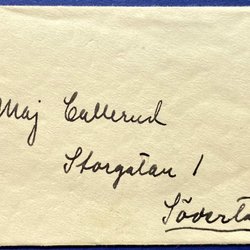 Maj Callerud
Storgatan 1
Söderta